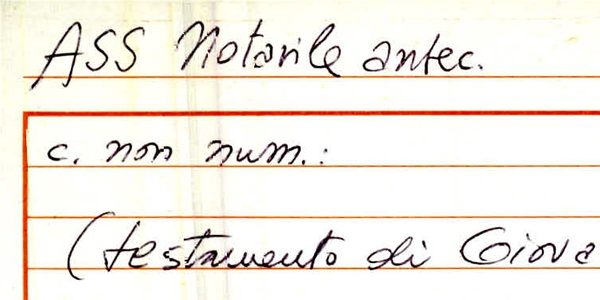 ASS Notarile antec.
c. non num.:
(testamento di Giova